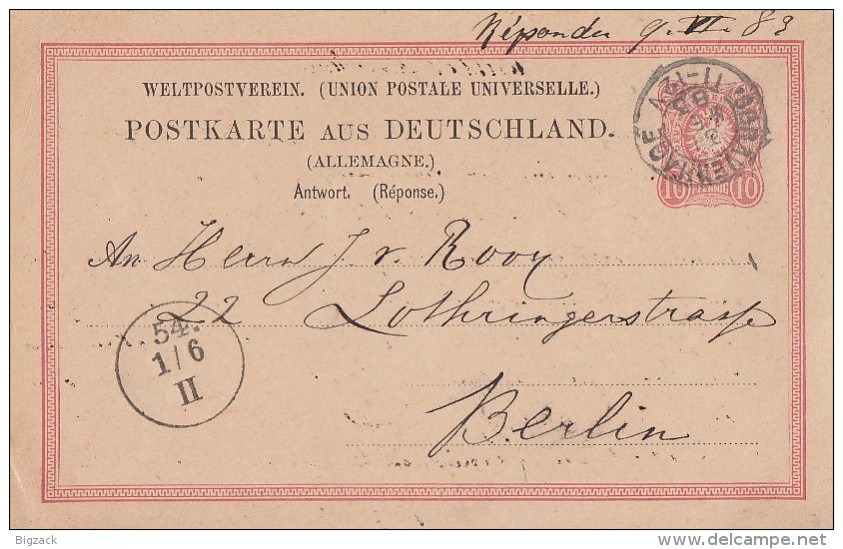 Réponder 9. VI. 83
WELTPOSTVEREIN. (UNION POSTALE UNIVERSELLE.)
POSTKARTE AUS DEUTSCHLAND.
(ALLEMAGNE.)
Antwort. (Réponse.)
'SGRAVENHAGE
11-12 V
83
10 PFENNIG 10
An Herrn J. v. Rooy
22 Lothringerstrasse
Berlin
54.
1/6
II
Bigzack
delcampe.net